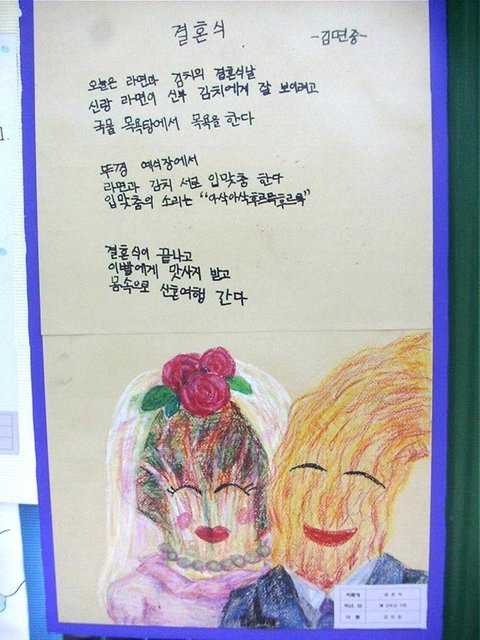 결혼식
-김면중-
오늘은 라면과 김치의 결혼식날
신랑 라면이 신부 김치에게 잘 보이려고
국물 목욕탕에서 목욕을 한다
뚜껑 예식장에서
라면과 김치 서로 입맞춤 한다
입맞춤의 소리는 "아삭아삭후르륵후르륵"
결혼식이 끝나고
이빨에게 맛사지 받고
몸속으로 신혼여행 간다
작품명
결혼식
학년, 반
이름